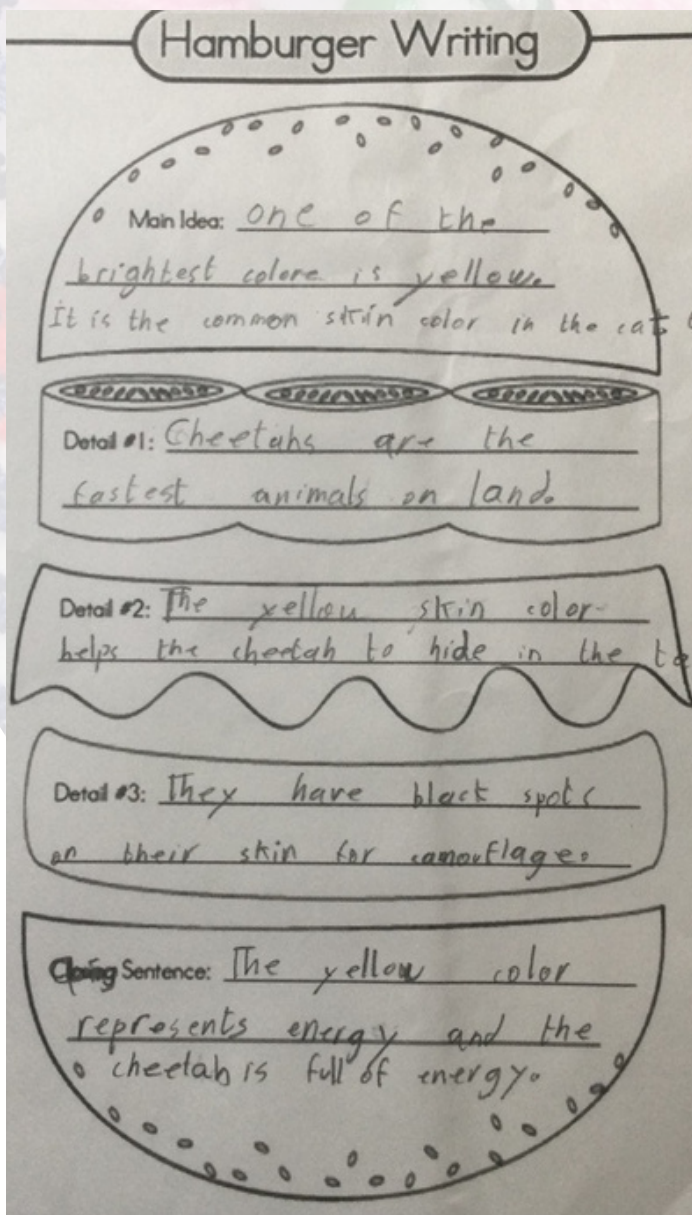 Hamburger Writing
Main Idea: one of the
brightest colore is yellow.
It is the common skin color in the cat
Detail #1: Cheetahs are the
fastest animals on land.
Detail #2: The yellow skin color
helps the cheetah to hide in the
Detail #3: They have black spots
on their skin for camouflage.
Closing Sentence: The yellow color
represents energy and the
cheetah is full of energy.